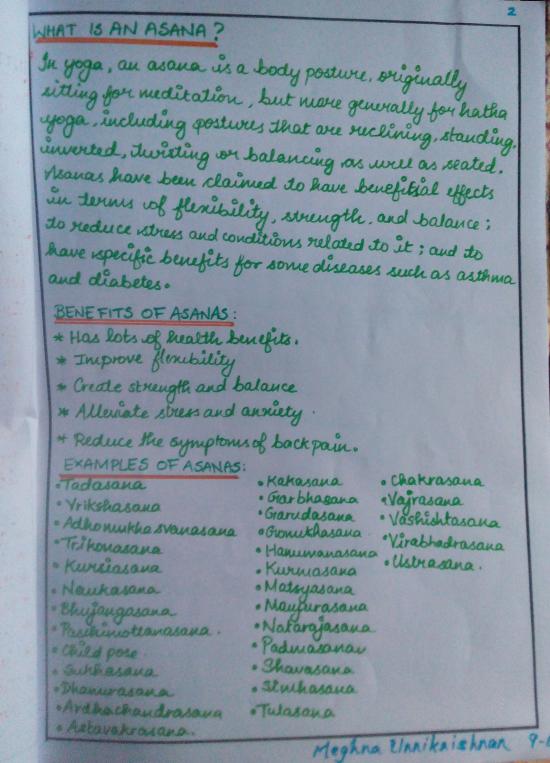 2
WHAT IS AN ASANA?
In yoga, an asana is a body posture, originally
sitting for meditation, but more generally for hatha
yoga, including postures that are reclining, standing,
inverted, twisting or balancing as well as seated.
Asanas have been claimed to have benefitial effects
in terms of flexibility, strength, and balance;
to reduce stress and conditions related to it; and to
have specific benefits for some diseases such as asthma
and diabetes.
BENEFITS OF ASANAS:
* Has lots of health benefits.
* Improve flexibility
* Create strength and balance
* Alleviate stress and anxiety.
* Reduce the symptoms of back pain.
EXAMPLES OF ASANAS:
• Tadasana
• Vrikshasana
• Adhomukhasvanasana
• Trikonasana
• Kursiasana
• Naukasana
• Bhujangasana
• Paschimottanasana.
• Child pose
• Sukhasana
• Dhanurasana
• Ardhachandrasana
• Astavakrasana.
• Kakasana
• Garbhasana
• Garudasana
• Gomukhasana
• Hanumanasana
• Kurmasana
• Matsyasana
• Mayurasana
• Natarajasana
• Padmasana
• Shavasana
• Simhasana
• Tulasana
• Chakrasana
• Vajrasana
• Vashishtasana
• Virabhadrasana
• Ustrasana.
Meghna Unnikrishnan 9-